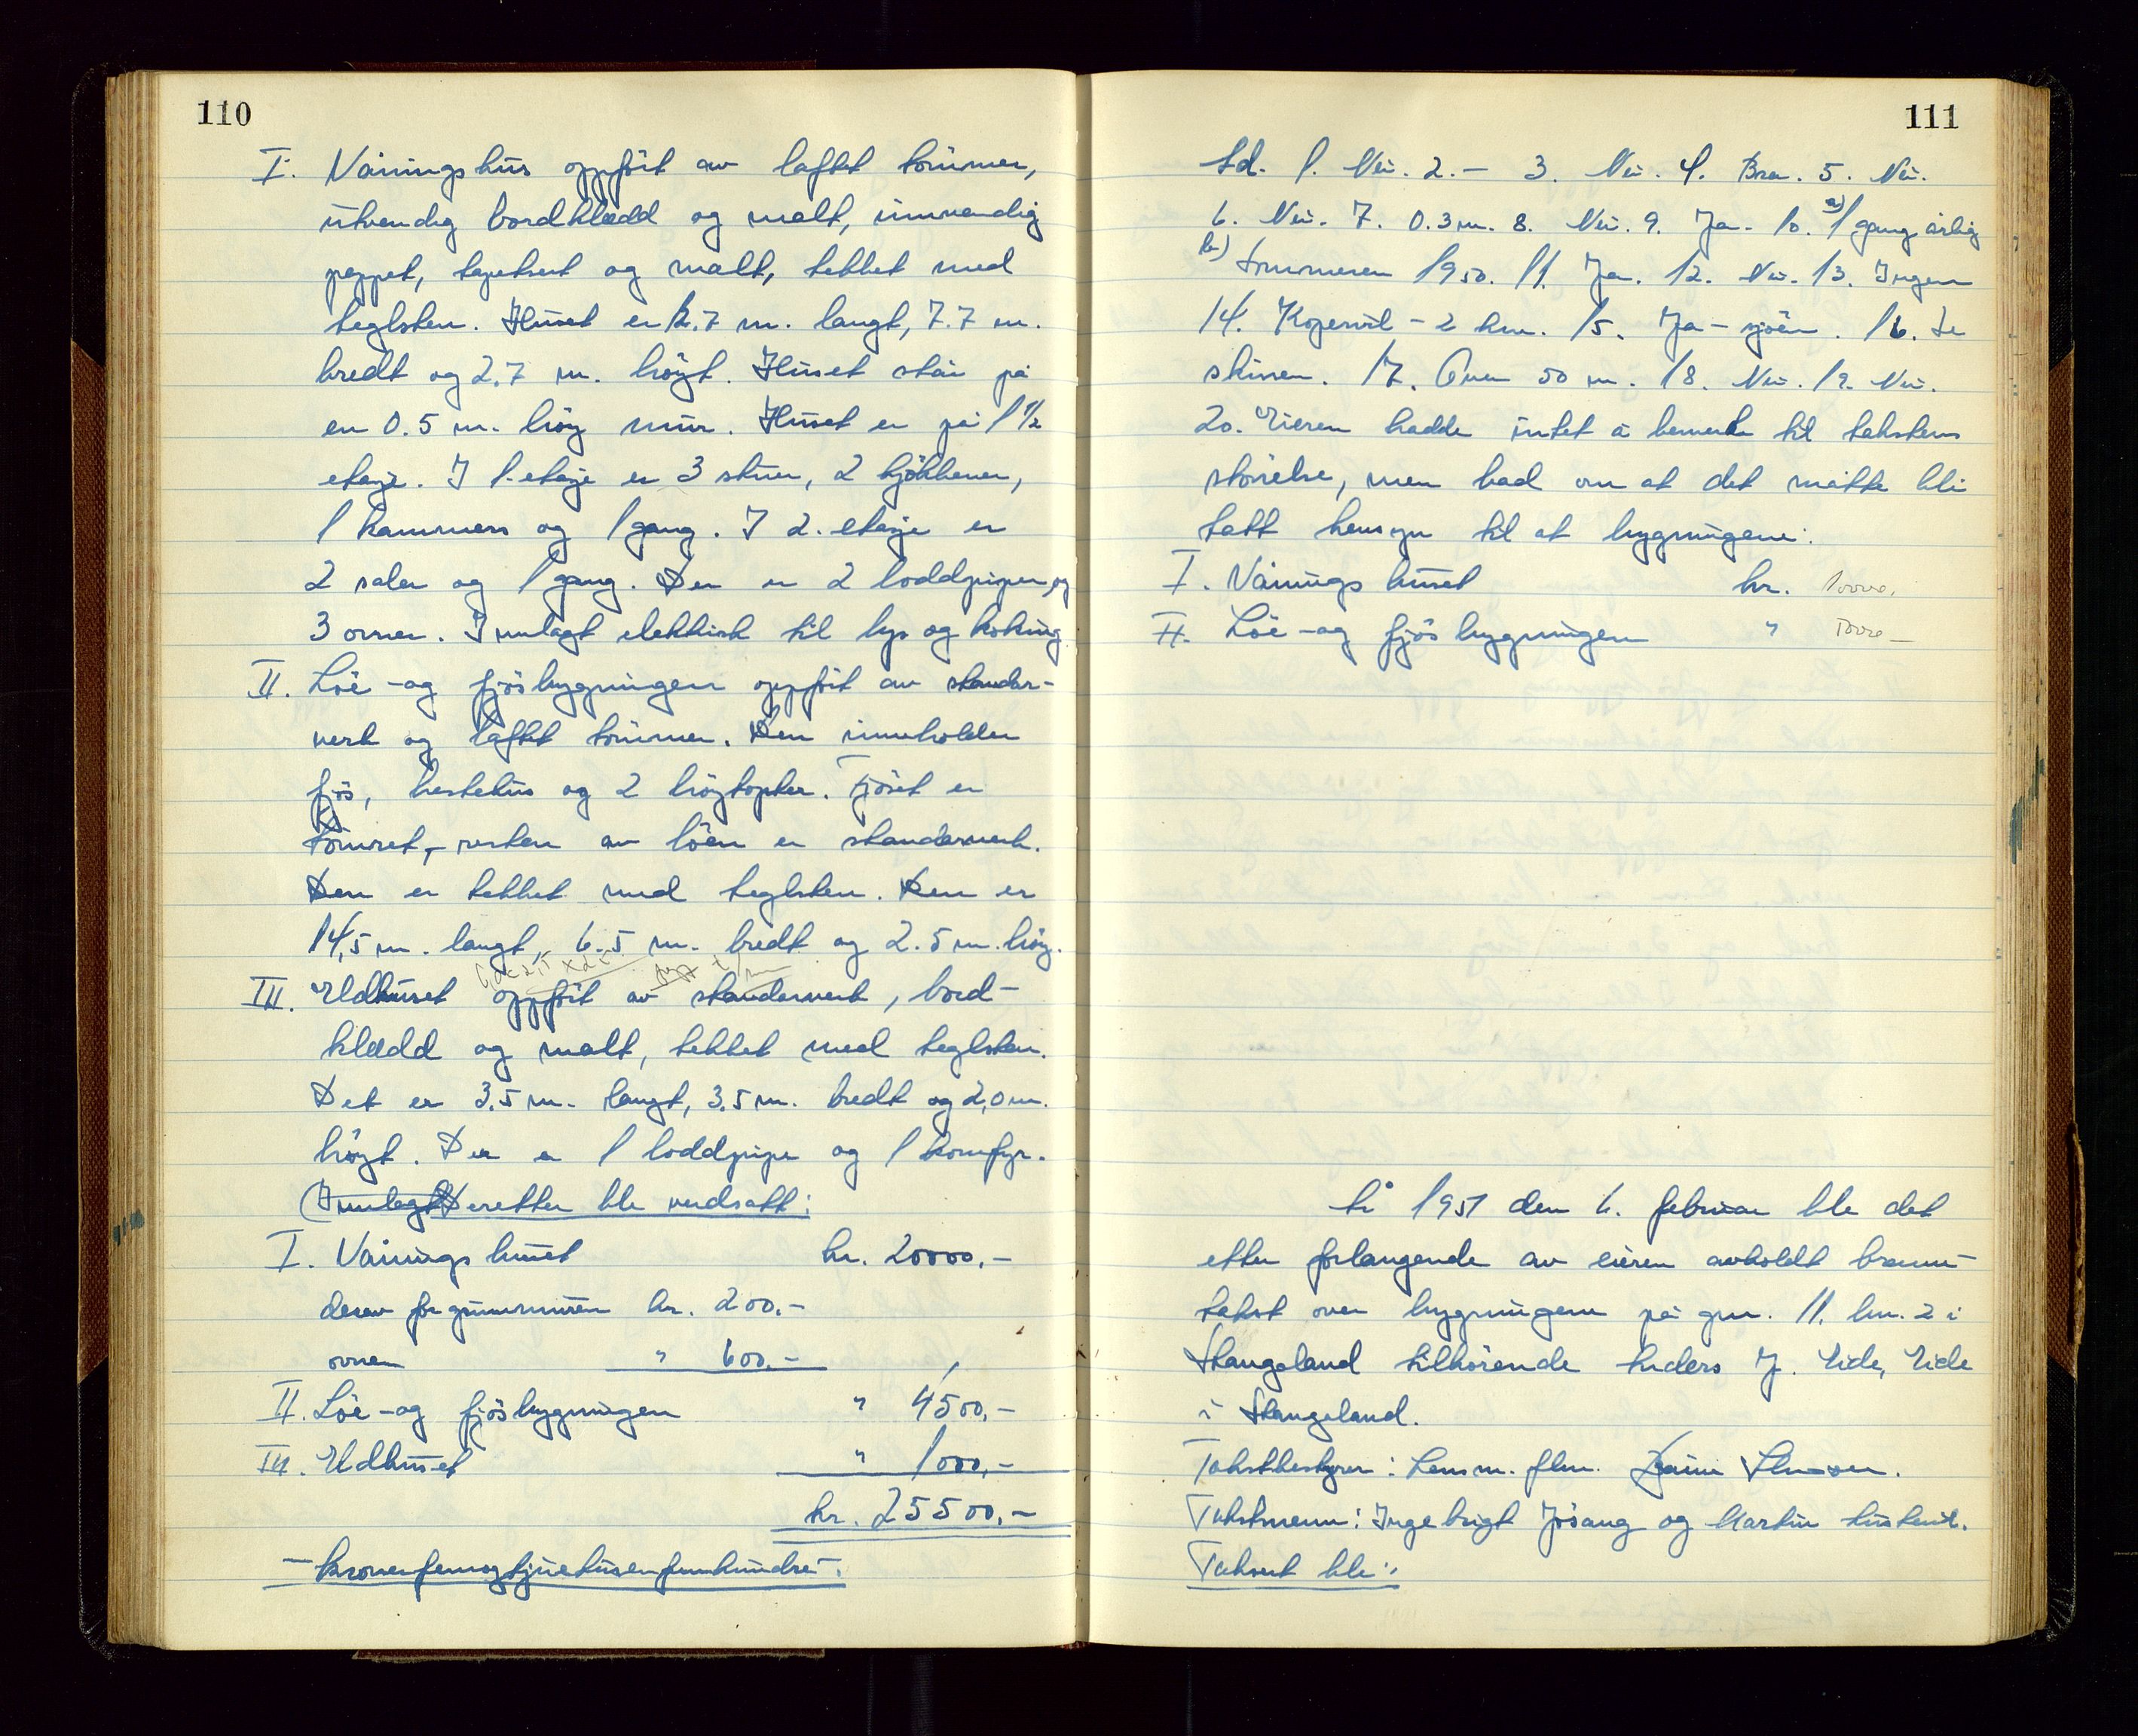 110
I. Våningshus oppført av laftet tømmer,
utvendig bordklædd og malt, innvendig
pappet, tapetsert og malt, tekket med
teglsten. Huset er 12.7 m. langt, 7.7 m.
bredt og 2.7 m. høgt. Huset står på
en 0.5 m. høg mur. Huset er på 1 1/2
etasje. I 1. etasje er 3 stuer, 2 kjøkkener,
1 kammers og 1 gang. I 2. etasje er
2 saler og 1 gang. Der er 2 loddpiper og
3 ovner. Innlagt elektrisk til lys og koking
II. Løe- og fjøsbygningen oppført av stander-
verk og laftet tømmer. Den inneholder
fjøs, hestehus og 2 høgtopter. Fjøset er
tømret, resten av løen er standerverk.
Den er tekket med teglsten. Den er
14,5 m. langt, 6.5 m. bredt og 2.5 m. høg.
III. Eldhuset oppført av standerverk, bord-
klædd og malt, tekket med teglsten.
Det er 3.5 m. langt, 3.5 m. bredt og 2,0 m.
høgt. Der er 1 loddpipe og 1 komfyr.
(Innlagt Deretter ble verdsatt:
I. Våningshuset kr. 20000.-
derav for grunnmuren kr. 200.-
ovner " 600.-
II. Løe- og fjøsbygningen " 4500,-
III. Eldhuset " 1000,-
kr. 25500.-
- kronerfemogtjuetusenfemhundre -
111
Sd. 1. Nei. 2. - 3. Nei. 4. Bra. 5. Nei.
6. Nei. 7. 0.3 m. 8. Nei. 9. Ja. 10. a) 1 gang årlig
b) Sommeren 1950. 11. Ja. 12. Nei. 13. Ingen
14. Kopervik - 2 km. 15. Ja - sjøen. 16. Se
skissen. 17. Over 50 m. 18. Nei. 19. Nei.
20. Eieren hadde intet å bemerke til takstens
størrelse, men bad om at det måtte bli
tatt hensyn til at bygningene:
I. Våningshuset kr. 10000,
II. Løe- og fjøsbygningen "
År 1951 den 6. februar ble det
etter forlangende av eieren avholdt brann-
takst over bygningene på gnr. 11. bnr. 2 i
Stangeland tilhørende Anders J. Eide, Eide
i Stangeland.
Takstbestyrer: Lensm. flm.
Takstmenn: Ingebrigt Jösang og Martin
Taksert ble: